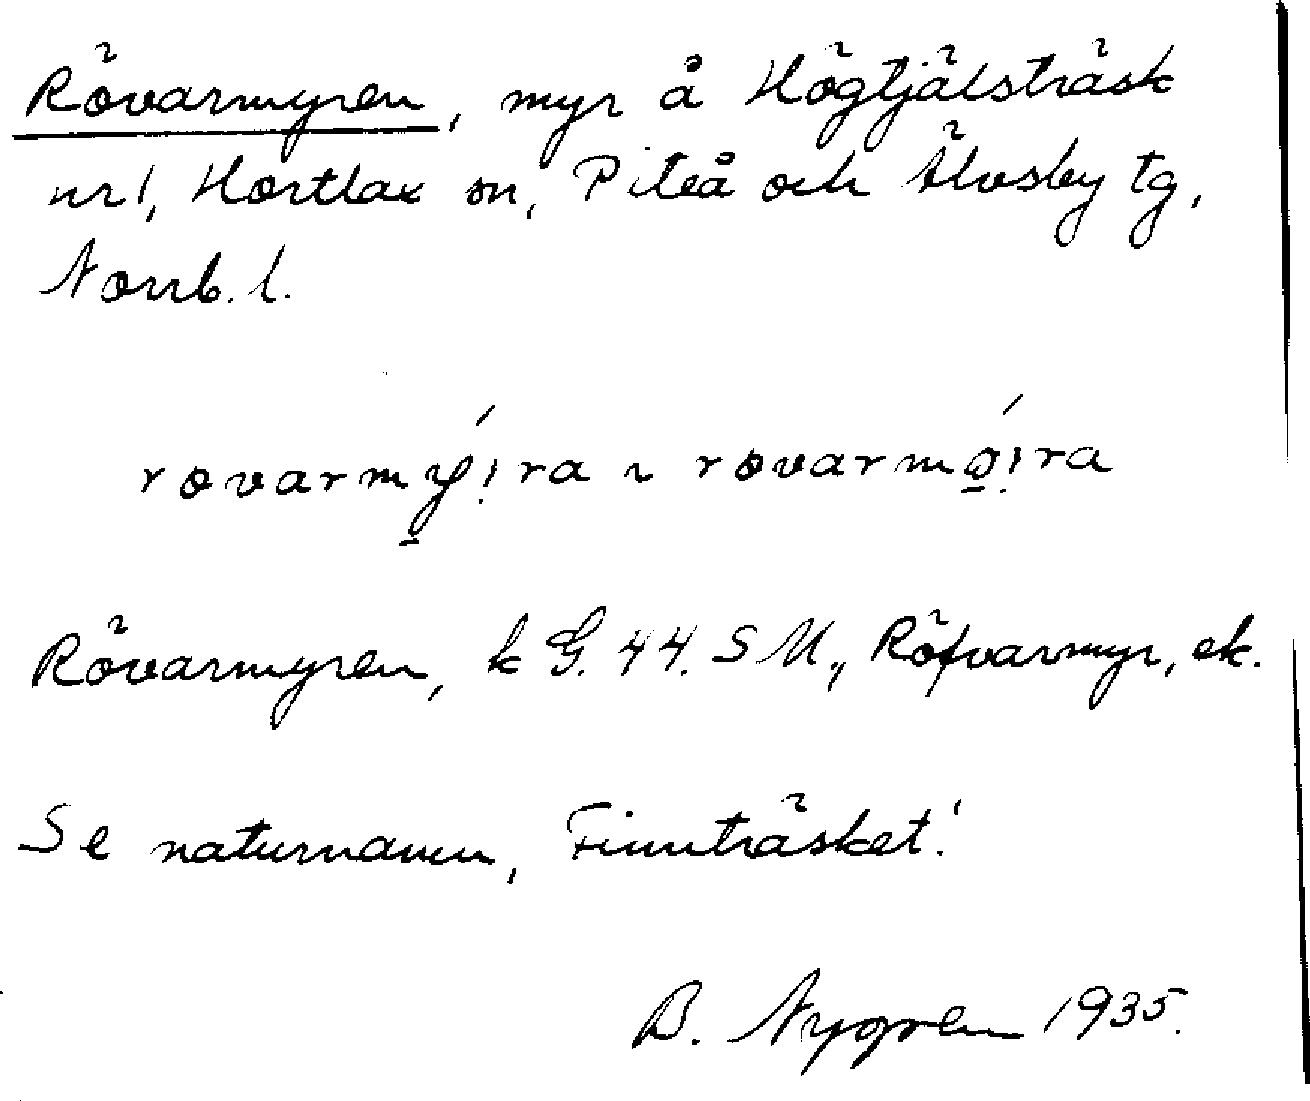 Rövarmyren, myr å Högtjälsträsk
nr 1, Hortlax sn, Piteå och Älvsby tg,
Norrb. l.
rovarmý̱꞉ra ~ rovarmǿ̱꞉ra
Rövarmyren, k G. 44. SM., Röfvarmyr, ek.
Se naturnamn, Finnträsket!
B. Nygren 1935.